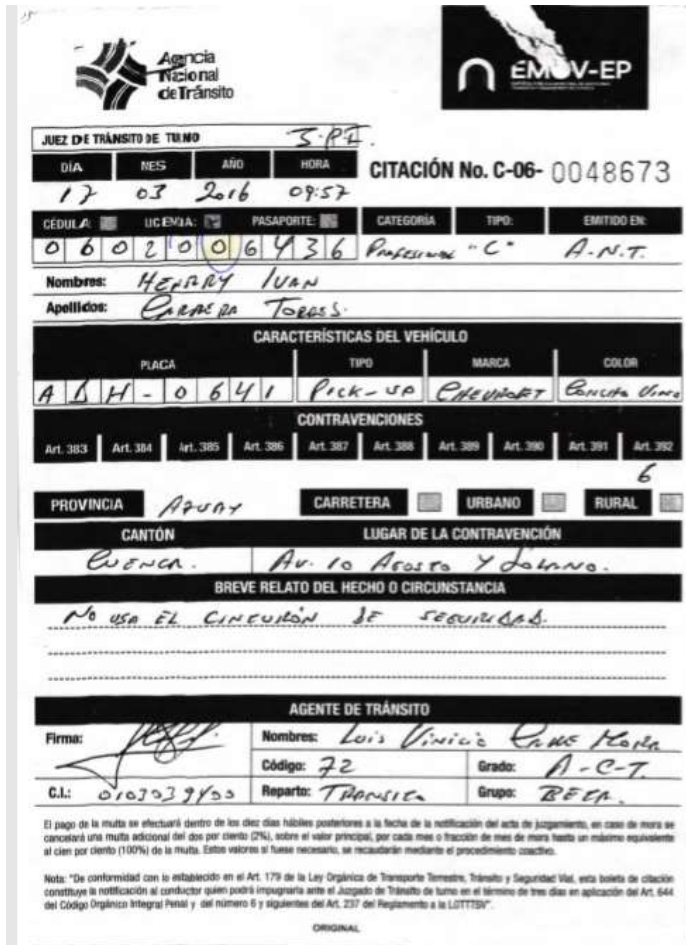 Agencia
Nacional
de Tránsito
EMOV-EP
JUEZ DE TRÁNSITO DE TURNO
DÍA MES AÑO HORA
CITACIÓN No. C-06- 0048673
17 03 2016 09:57
CÉDULA: LICENCIA: PASAPORTE: CATEGORÍA TIPO: EMITIDO EN:
0602006436 PROFESIONAL "C" A.N.T.
Nombres: HENRRY IVAN
Apellidos: CARRERA TORRES.
CARACTERÍSTICAS DEL VEHÍCULO
PLACA TIPO MARCA COLOR
ABH-0641 PICK-UP CHEVROLET CONCHO VINO
CONTRAVENCIONES
Art. 383 Art. 384 Art. 385 Art. 386 Art. 387 Art. 388 Art. 389 Art. 390 Art. 391 Art. 392
6
PROVINCIA AZUAY CARRETERA URBANO RURAL
CANTÓN LUGAR DE LA CONTRAVENCIÓN
CUENCA. AV. 10 AGOSTO Y SOLANO.
BREVE RELATO DEL HECHO O CIRCUNSTANCIA
NO USA EL CINTURÓN DE SEGURIDAD.
AGENTE DE TRÁNSITO
Firma: Nombres: Luis Vinicio
Código: 72 Grado: A-C-T.
C.I.: 0103039400 Reparto: TRANSITO Grupo: BETA.
El pago de la multa se efectuará dentro de los diez días hábiles posteriores a la fecha de la notificación del acta de juzgamiento, en caso de mora se
cancelará una multa adicional del dos por ciento (2%), sobre el valor principal, por cada mes o fracción de mes de mora hasta un máximo equivalente
al cien por ciento (100%) de la multa. Estos valores al fuese necesario, se recaudarán mediante el procedimiento coactivo.
Nota: "De conformidad con lo establecido en el Art. 179 de la Ley Orgánica de Transporte Terrestre, Tránsito y Seguridad Vial, esta boleta de citación
constituye la notificación al conductor quien podrá impugnarla ante el Juzgado de Tránsito de turno en el término de tres días en aplicación del Art. 644
del Código Orgánico Integral Penal y del número 6 y siguientes del Art. 237 del Reglamento a la LOTTTSV".
ORIGINAL